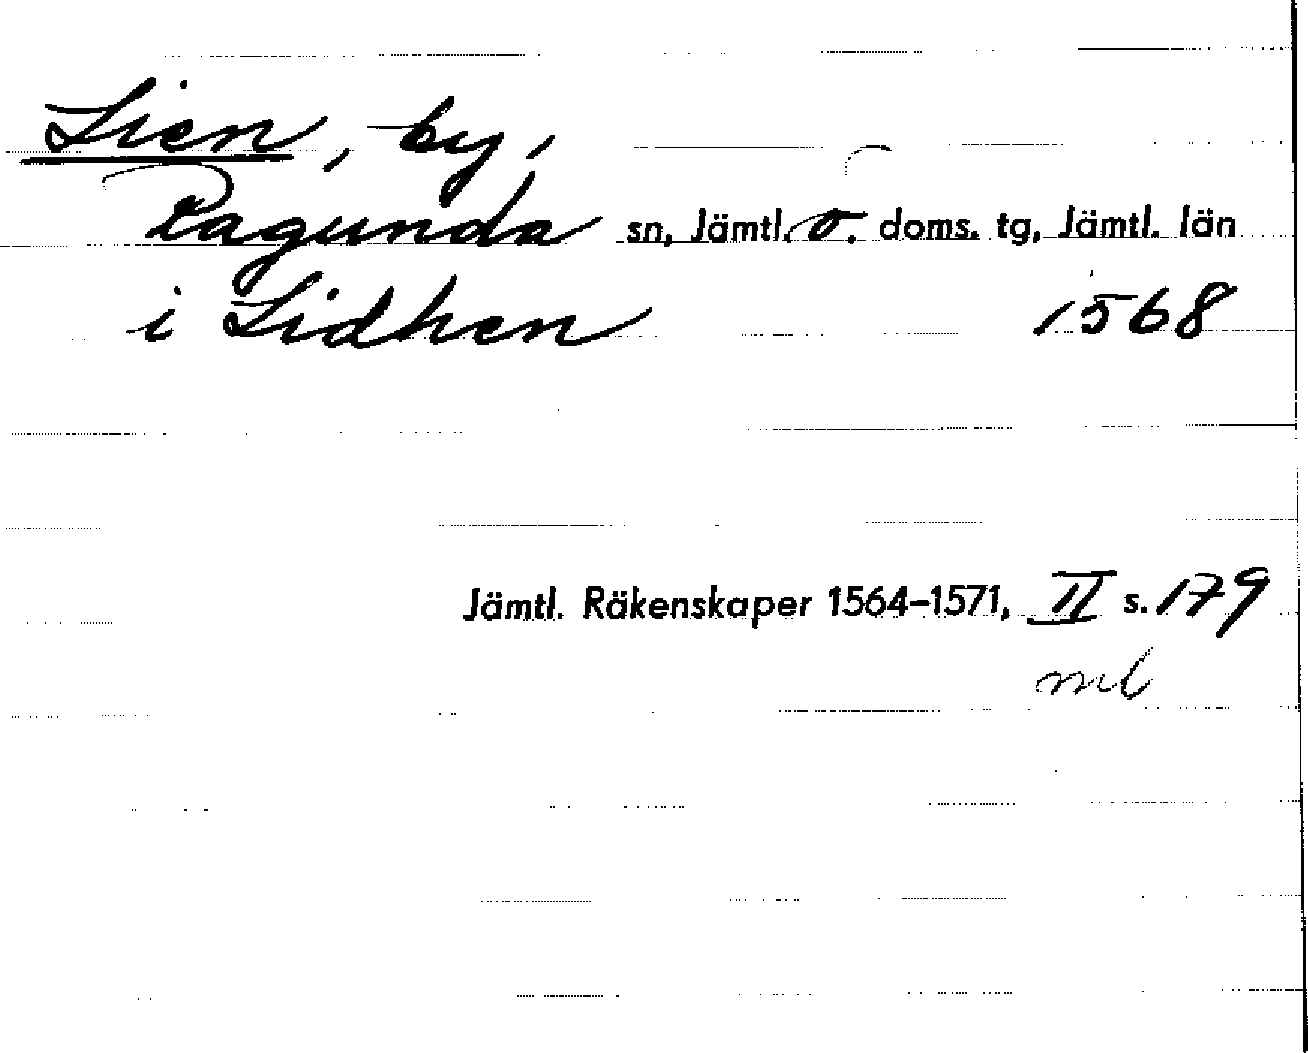 Lien, by,
Ragunda sn, Jämtl. ö. doms. tg, Jämtl. län
i Lidhen 1568
Jämtl. Räkenskaper 1564-1571, II s. 179